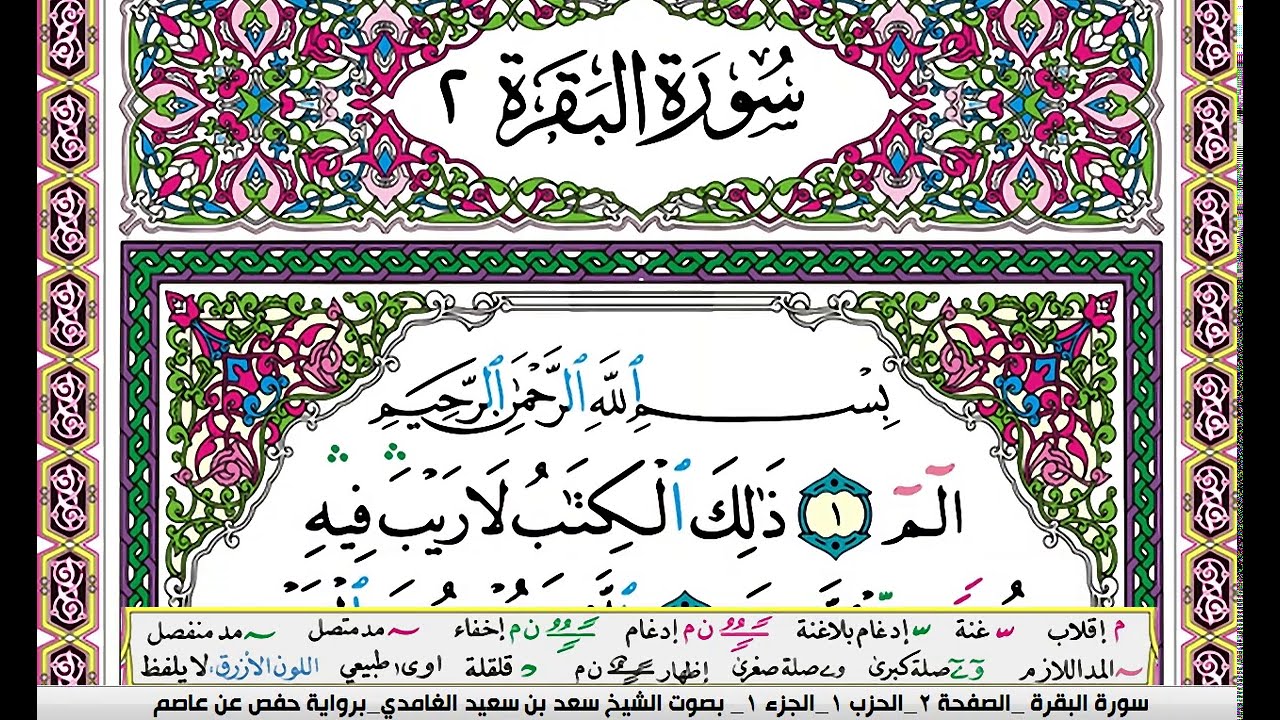 سُورَةُ الْبَقَرَةِ ٢
بِسْمِ ٱللَّهِ ٱلرَّحْمَٰنِ ٱلرَّحِيمِ
الٓمٓ ١ ذَٰلِكَ ٱلْكِتَٰبُ لَا رَيْبَ ۛ فِيهِ ۛ
م إقلاب س غنة س إدغام بلاغنة ن م إدغام ن م إخفاء مد متصل مد منفصل
المد اللازم و ے صلة كبرى و ے صلة صغرى ن م إظهار د قلقلة ا و ى طبيعي اللون الأزرق: لا يلفظ
سورة البقرة _الصفحة ٢_الحزب ١_الجزء ١_ بصوت الشيخ سعد بن سعيد الغامدي_برواية حفص عن عاصم